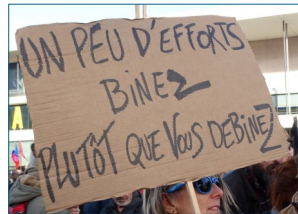 UN PEU D'EFFORTS
BINEZ
PLUTÔT QUE VOUS DEBINEZ